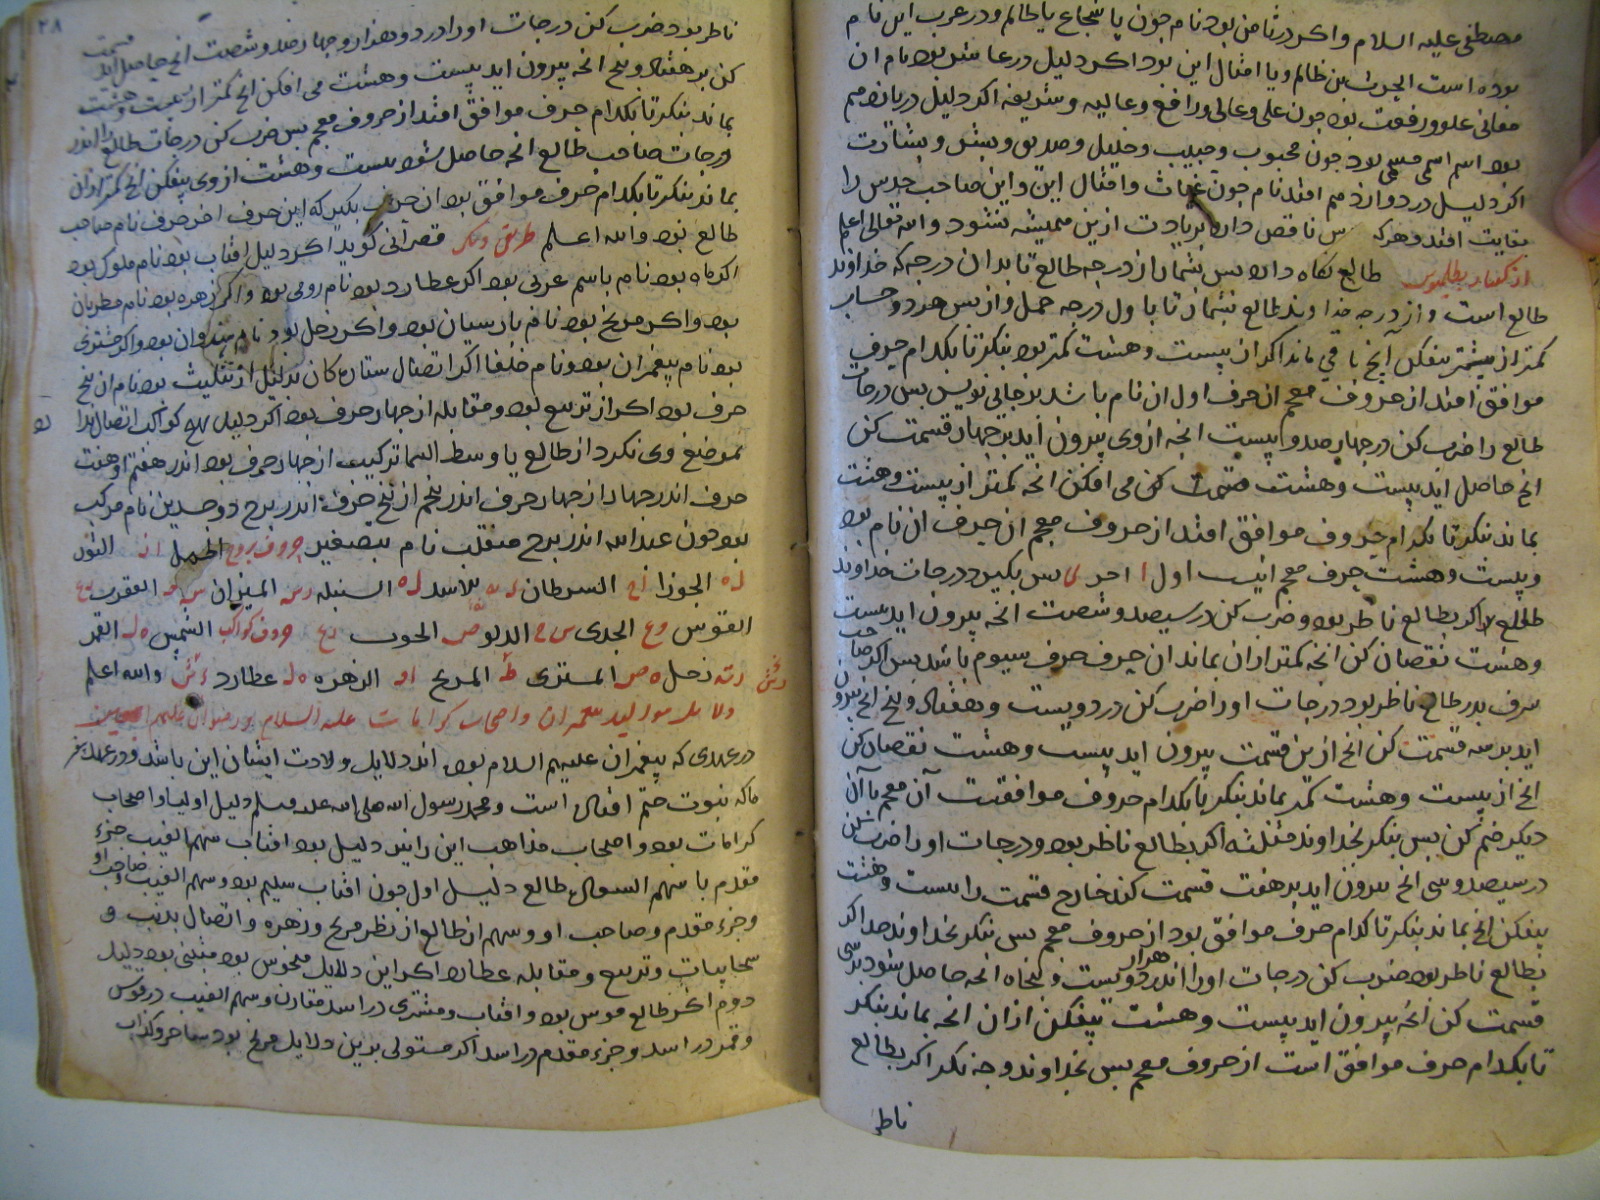 مصطفی علیه السلام واکر در ثامن بود نام جون یا شجاع یا ظالم و در عرب این نام
بوده است ظالم و یا امثال این بود اکر دلیل در عاشر بود نام ان
معانی علو و رفعت بود جون علی و عالی و رافع و عالیه و شریفه اکر دلیل در یازدهم
بود اسم جون محبوب و حبیب و خلیل و صدیق و بشارت
اکر دلیل در دوازدهم افتد نام جون غیاث و امثال این و این صاحب حدس را
بغایت افتد و هرکه ناقص دارد ازین نشود والله تعالی اعلم
از کفتار بطلمیوس طالع نکاه دار بس بشمار از درجه طالع تا بدان درجه که خداوند
طالع است و از درجه خداوند طالع بشمار تا باول درجه حمل و از بس هر دو حساب
کمتر از بیشتر بیفکن آنج باقی ماند اکر ان بیست و هشت کمتر بود بنکر تا بکدام حرف
موافق افتد از حروف معجم ان حرف اول ان نام باشد بر جائی نویس بس درجات
طالع را ضرب کن در جهار صد و بیست انجه از وی بیرون اید بر جهار قسمت کن
انج حاصل اید بیست و هشت قسمت کن می افکن انجه کمتر از بیست و هشت
بماند بنکر تا بکدام حروف موافق افتد از حروف معجم ان حرف ان نام بود
و بیست و هشت حرف معجم اول ا بس بکیر درجات خداوند
طالع اکر بطالع ناظر بود و ضرب کن در سیصد و شصت انجه بیرون اید بیست
و هشت نقصان کن انجه کمتر از ان بماند ان حرف حرف سیوم باشد بس اکر صاحب
شرف بدر طالع ناظر بود درجات اورا ضرب کن در دویست و هفتاد و بنج انج بیرون
اید بر سه قسمت کن انج از بن قسمت بیرون اید بیست و هشت نقصان کن
انج از بیست و هشت کمتر بماند بنکر تا بکدام حروف موافقست آن معجم با آن
دیکر ضم کن بس بنکر بخداوند مثلثه اکر بطالع ناظر بود و درجات اورا ضرب کن
در سیصد و سی انج بیرون اید بر هفت قسمت کند خارج قسمت را بیست و هشت
بیفکن انج بماند بنکر تا کدام حرف موافق بود از حروف معجم بس بنکر بخداوند حد اکر
بطالع ناظر بود ضرب کن درجات اورا اندر دو هزار و بیست و بنجاه انجه حاصل شود برسی
قسمت کن انجه بیرون اید بیست و هشت بیفکن از ان انجه بماند بنکر
تا بکدام حرف موافق است از حروف معجم بس بخداوند وجه نکر اکر بطالع
ناظر
۲۸
ناظر بود ضرب کن درجات اورا در دو هزار و جهار صد و شصت انج حاصل اید قسمت
کن بر هفتاد و بنج انجه بیرون اید بیست و هشت می افکن انج کمتر از بیست و هشت
بماند بنکر تا بکدام حرف موافق افتد از حروف معجم بس ضرب کن درجات طالع را اندر
درجات صاحب طالع انجه حاصل شود بیست و هشت از وی بیفکن انج کمتر از ان
بماند بنکر تا بکدام حرف موافق بود ان حرف بکیر که این حرف اخر حرف نام صاحب
طالع بود والله اعلم طریق دیکر قصرانی کوید اکر دلیل افتاب بود نام ملوک بود
اکر ماه بود نام باسم عربی بود اکر عطارد بود نام رومی بود و اکر زهره بود نام مطربان
بود و اکر مریخ بود نام بارسیان بود و اکر زحل بود نام هندوان بود و اکر مشتری
بود نام بیغمران بود و نام خلفا اکر اتصال ستاره کان بدلیل از تثلیث بود نام ان بنج
حرف بود اکر از تربیع بود و مقابله از جهار حرف بود اکر دلیل بهیج کوکب اتصال ندارد
بموضع وی نکرد از طالع یا وسط السما ترکیب از جهار حرف بود اندر هفتم از هفت
حرف اندر جهار از جهار حرف اندر بنجم از بنج حرف اندر برج دو جسدین نام مرکب
بود جون عبد الله اندر برج منقلب نام بتصغیر حروف بروج الحمل ا الثور
ل ه الجوزا السرطان الاسد ل ه السنبله المیزان العقرب
القوس وع الجدی الدلو ص الحوت حروف کواکب الشمس القمر
زحل ه ص المشتری ط المریخ او الزهره عطارد والله اعلم
دلایل موالید بیغمران و اصحاب کرامات علیه السلام و رضوان علیهم اجمعین
در عهدی که بیغمران علیهم السلام بوده اند دلایل ولادت ایشان این باشد و در عهد
ما که نبوت ختم افتاد است و محمد رسول الله صلی الله علیه و سلم دلیل اولیا و اصحاب
کرامات بود و اصحاب مذاهب این را نیز دلیل بود افتاب سهم الغیب جزء
مقدم یا سهم السعادة طالع دلیل اول جون افتاب سلیم بود و سهم الغیب و صاحب او
و جزء مقدم و صاحب او و سهم از طالع از نظر مریخ و زهره و اتصال بذنب و
و تربیع و مقابله عطارد اکر این دلایل منحوس بود متنبی بود دلیل
دوم اکر طالع قوس بود و افتاب و مشتری در اسد مقارن و سهم الغیب در قوس
و قمر در اسد و جزء مقدم در اسد اکر مستولی بدین دلایل مریخ بود ساحر و کذاب